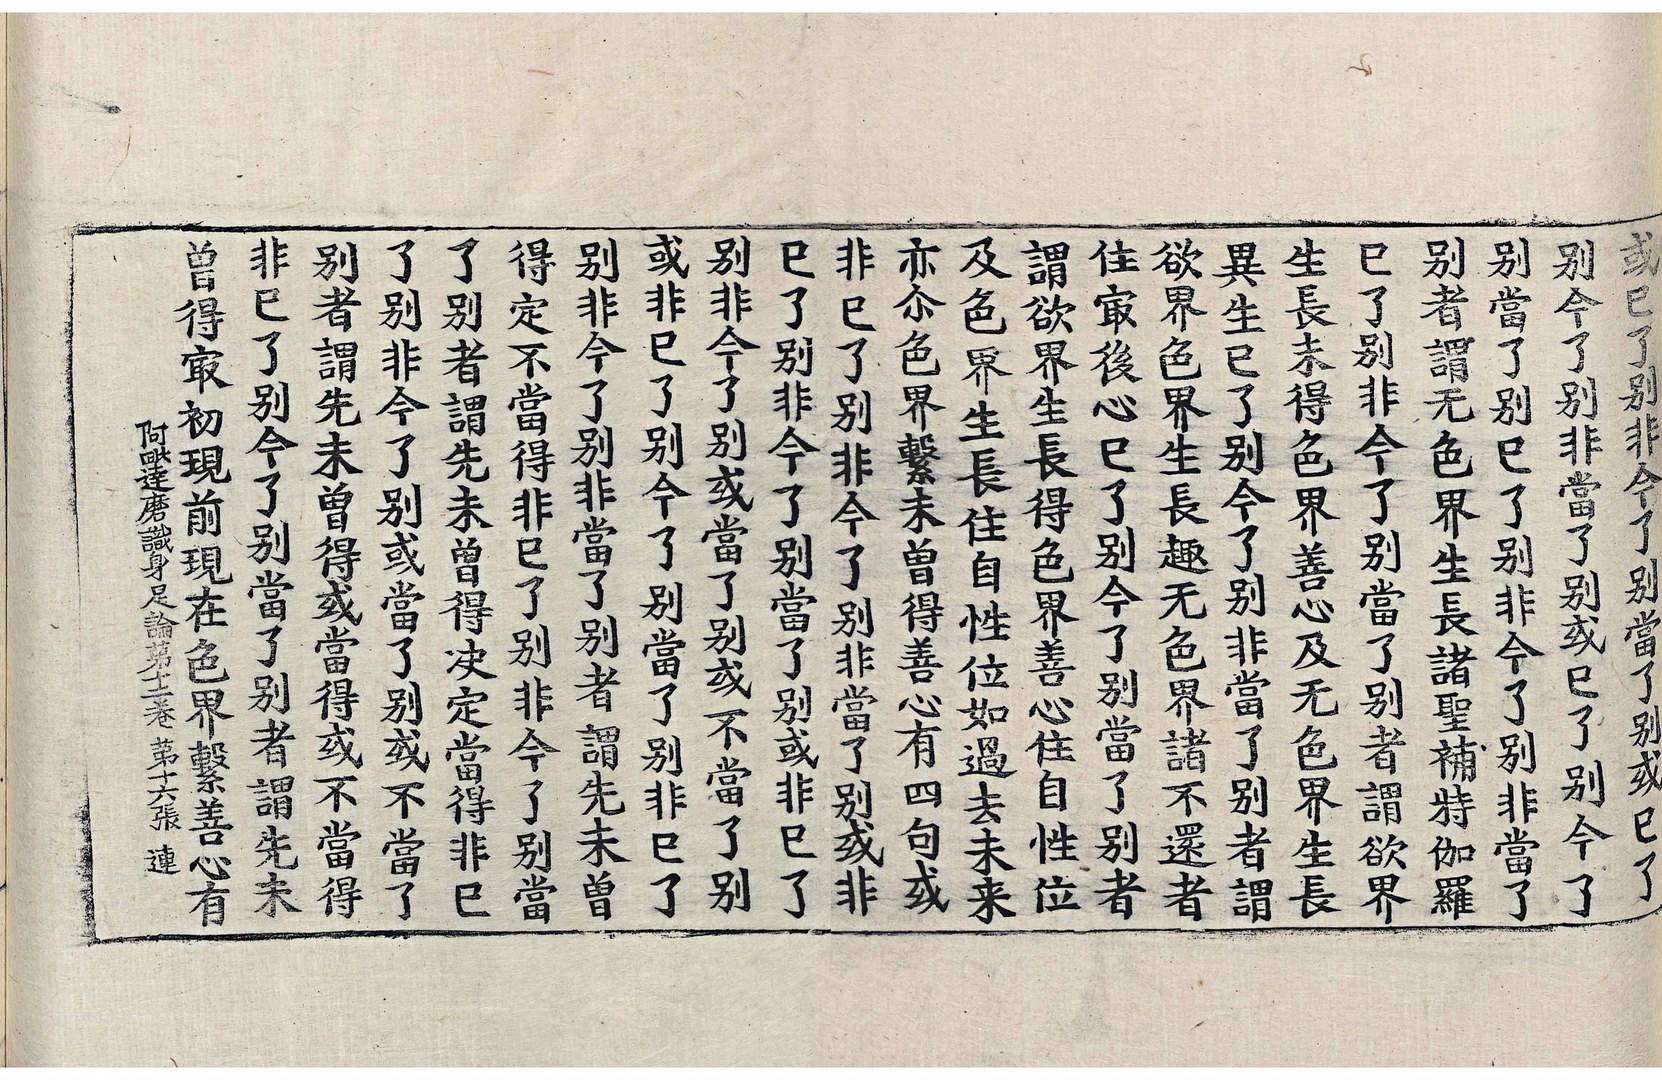 或已了别非今了别當了别或已了
别今了别非當了别或已了别今了
别當了别已了别非今了别非當了
别者謂无色界生長諸聖補特伽羅
已了别非今了别當了别者謂欲界
生長未得色界善心及无色界生長
異生已了别今了别非當了别者謂
欲界色界生長趣无色界諸不還者
住㝡後心已了别今了别當了别者
謂欲界生長得色界善心住自性位
及色界生長住自性位如過去未来
亦尒色界繫未曾得善心有四句或
非已了别非今了别非當了别或非
已了别非今了别當了别或非已了
别非今了别或當了别或不當了别
或非已了别今了别當了别非已了
别非今了别非當了别者謂先未曾
得定不當得非已了别非今了别當
了别者謂先未曾得决定當得非已
了别非今了别或當了别或不當了
别者謂先未曾得或當得或不當得
非已了别今了别當了别者謂先未
曾得㝡初現前現在色界繫善心有
阿毗達磨識身足論第十二卷 第十六張 連